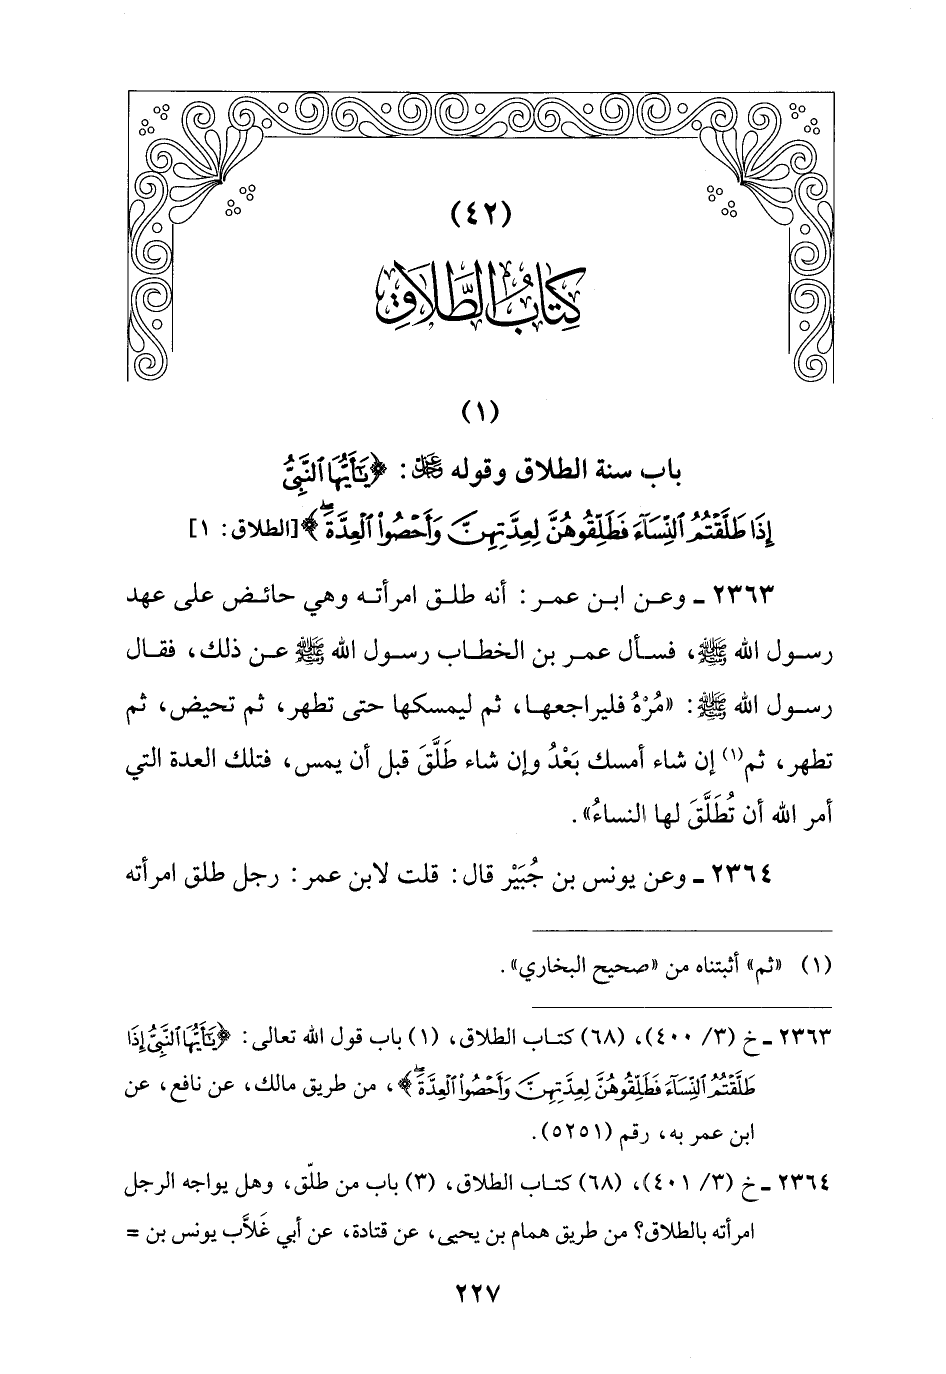 (٤٢)
كِتَابُ الطَّلَاقِ
(١)
باب سنة الطلاق وقوله ﷿: ﴿يَٰٓأَيُّهَا ٱلنَّبِيُّ
إِذَا طَلَّقۡتُمُ ٱلنِّسَآءَ فَطَلِّقُوهُنَّ لِعِدَّتِهِنَّ وَأَحۡصُواْ ٱلۡعِدَّةَۖ﴾ [الطلاق: ١]
٢٣٦٣ ـ وعن ابن عمر: أنه طلق امرأته وهي حائض على عهد
رسول الله ﷺ، فسأل عمر بن الخطاب رسول الله ﷺ عن ذلك، فقال
رسول الله ﷺ: «مُرْهُ فليراجعها، ثم ليمسكها حتى تطهر، ثم تحيض، ثم
تطهر، ثم(١) إن شاء أمسك بَعْدُ وإن شاء طَلَّقَ قبل أن يمس، فتلك العدة التي
أمر الله أن تُطَلَّقَ لها النساءُ».
٢٣٦٤ ـ وعن يونس بن جُبَيْر قال: قلت لابن عمر: رجل طلق امرأته
(١) «ثم» أثبتناه من «صحيح البخاري».
٢٣٦٣ ـ خ (٣/ ٤٠٠)، (٦٨) كتاب الطلاق، (١) باب قول الله تعالى: ﴿يَٰٓأَيُّهَا ٱلنَّبِيُّ إِذَا
طَلَّقۡتُمُ ٱلنِّسَآءَ فَطَلِّقُوهُنَّ لِعِدَّتِهِنَّ وَأَحۡصُواْ ٱلۡعِدَّةَۖ﴾، من طريق مالك، عن نافع، عن
ابن عمر به، رقم (٥٢٥١).
٢٣٦٤ ـ خ (٣/ ٤٠١)، (٦٨) كتاب الطلاق، (٣) باب من طلّق، وهل يواجه الرجل
امرأته بالطلاق؟ من طريق همام بن يحيى، عن قتادة، عن أبي غَلاَّب يونس بن =
٢٢٧